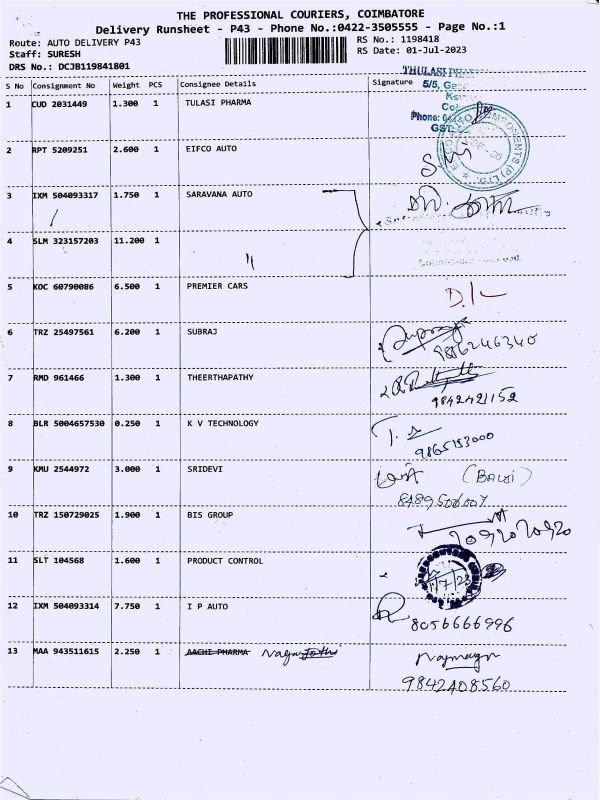 THE PROFESSIONAL COURIERS, COIMBATORE
Delivery Runsheet - P43 - Phone No.:0422-3505555 - Page No.:1
Route: AUTO DELIVERY P43 RS No.: 1198418
Staff: SURESH RS Date: 01-Jul-2023
DRS No.: DCJB119841801
S No Consignment No Weight PCS Consignee Details Signature
THULASI
5/5,
Phone:
GST
1 CUD 2031449 1.300 1 TULASI PHARMA
2 RPT 5209251 2.600 1 EIFCO AUTO
3 IXM 504093317 1.750 1 SARAVANA AUTO
4 SLM 323157203 11.200 1 "
5 KOC 60790086 6.500 1 PREMIER CARS D/L
6 TRZ 25497561 6.200 1 SUBRAJ
9866246340
7 RMD 961466 1.300 1 THEERTHAPATHY
9842421152
8 BLR 5004657530 0.250 1 K V TECHNOLOGY
9865153000
9 KMU 2544972 3.000 1 SRIDEVI
8489506007
10 TRZ 150729025 1.900 1 BIS GROUP
7092070920
11 SLT 104568 1.600 1 PRODUCT CONTROL
1/7/23
12 IXM 504093314 7.750 1 I P AUTO
8056666996
13 MAA 943511615 2.250 1 AACHI PHARMA
9842408560